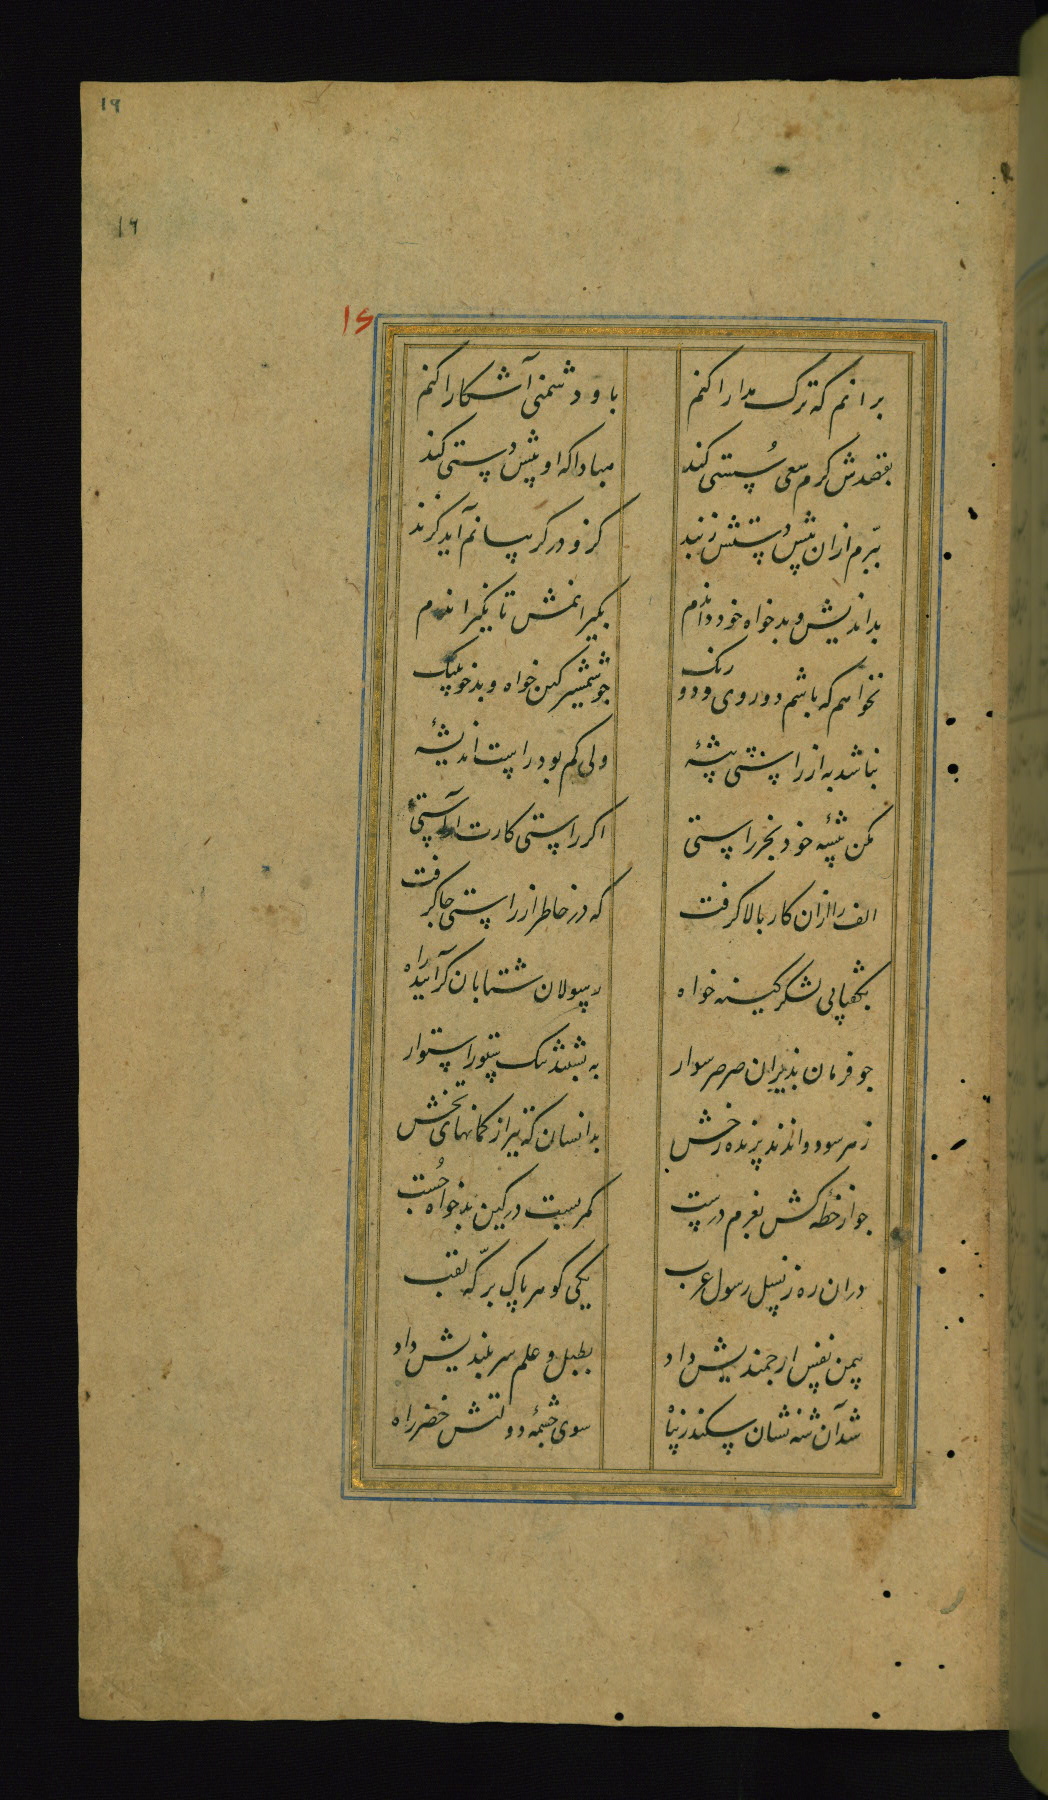 ١٩
١٦
١٦
برانم که ترک مدارا کنم
باو دشمنی آشکارا کنم
بقصدش کرم سعی سستی کند
مبادا که او پیش دستی کند
ببرم ازان پیش دستش ز بند
کزو در کریبانم آید کزند
بداندیش و بدخواه خود دانم
بکیرانمش تا نکیراندم
نخواهم که باشم دو روی و دو رنک
جو شمشیر کین خواه و بدخو پلنک
نباشد به از راستی پیشهٔ
ولی کم بود راست اندیشهٔ
مکن پیشه خود بجز راستی
اکر راستی کارت آراستی
الف را ازان کار بالا کرفت
که در خاطر از راستی جا کرفت
بکهپایی لشکر کینه خواه
رسولان شتابان کرایید راه
جو فرمان بذیران صرصر سوار
به بستند تنک ستور استوار
ز هر سو دواندند پرنده رخش
بدانسان که تیر از کمانهای تخش
جو از خطه کش بعزم درست
کمر بست در کین بدخواه چست
دران ره ز نسل رسول عرب
یکی کوهر پاک برکه لقب
بیمن نفس ارجمندیش داد
بطبل و علم سربلندیش داد
شد آن شه نشان سکندر پناه
سوی چشمهٔ دولتش خضر راه